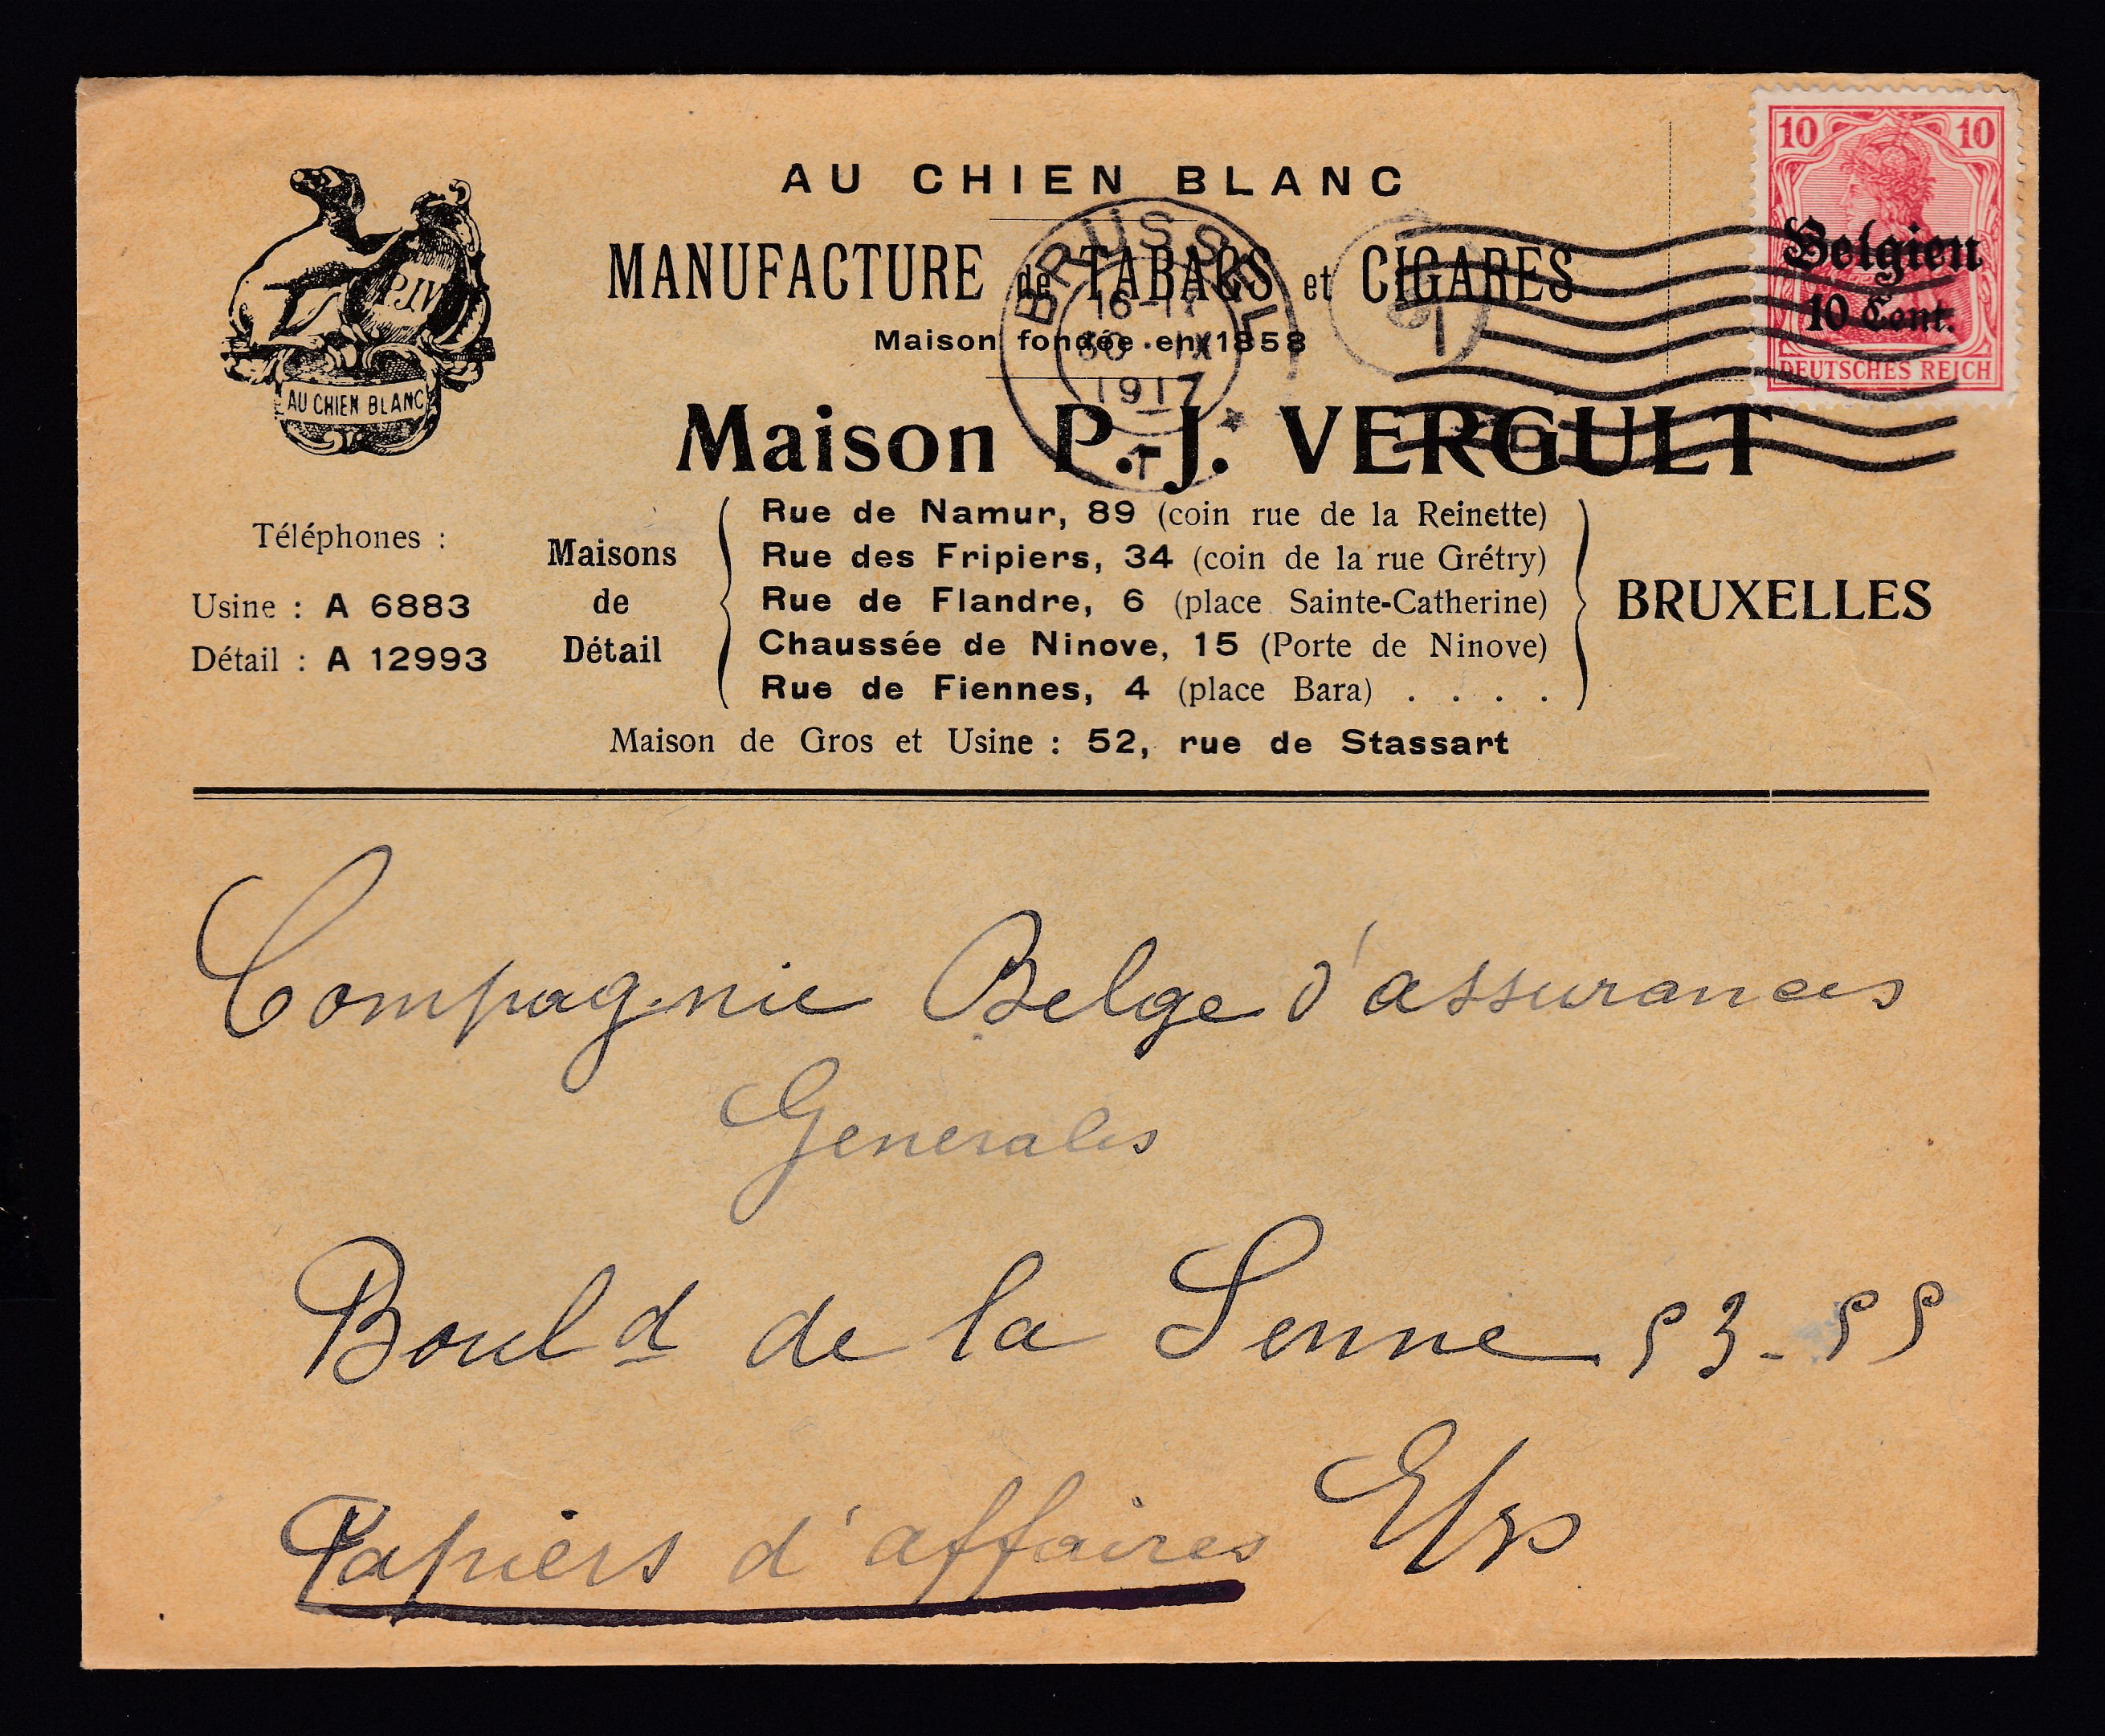 AU CHIEN BLANC
MANUFACTURE de TABACS et CIGARES
Maison fondée en 1858
Maison P. J. VERGULT
P.J.V
AU CHIEN BLANC
10 10
Belgien
10 Cent.
DEUTSCHES REICH
BRÜSSEL
16-17
30 · IX
1917
1
Téléphones :
Usine : A 6883
Détail : A 12993
Maisons
de
Détail
Rue de Namur, 89 (coin rue de la Reinette)
Rue des Fripiers, 34 (coin de la rue Grétry)
Rue de Flandre, 6 (place Sainte-Catherine)
Chaussée de Ninove, 15 (Porte de Ninove)
Rue de Fiennes, 4 (place Bara) . . . .
BRUXELLES
Maison de Gros et Usine : 52, rue de Stassart
Compagnie Belge d'assurances
Generales
Bould de la Senne 53-55
Papiers d'affaires